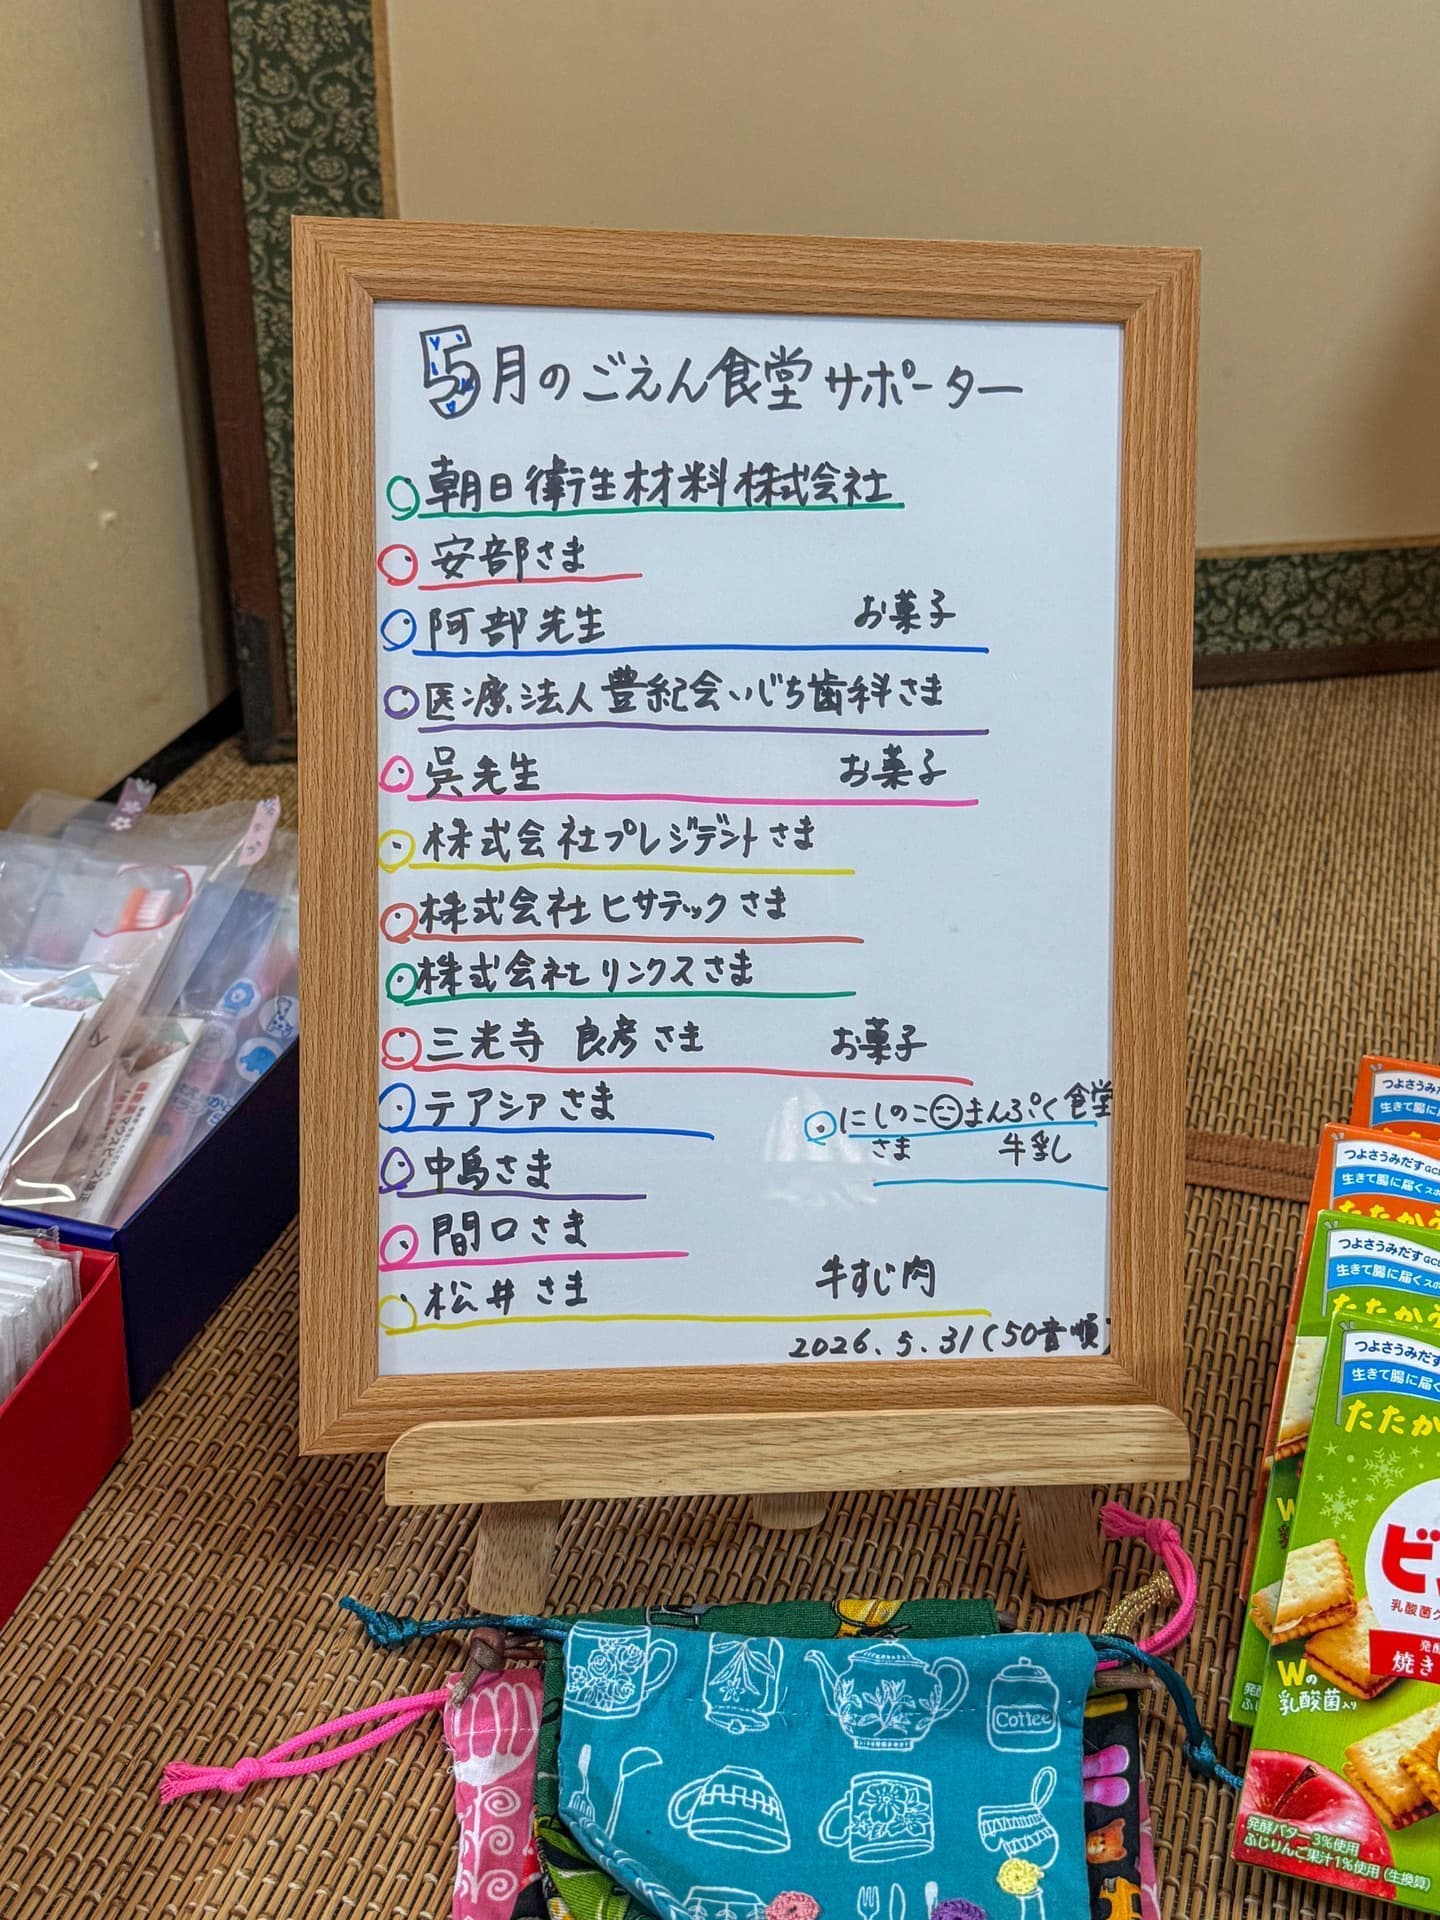 5月のごえん食堂サポーター
朝日衛生材料株式会社
安部さま
阿部先生 お菓子
医療法人豊紀会いじち歯科さま
呉先生 お菓子
株式会社プレジデントさま
株式会社ヒサテックさま
株式会社リンクスさま
三光寺 良彦さま お菓子
テアシアさま
にしのこまんぷく食堂
さま 牛乳し
中島さま
間口さま
松井さま 牛すじ肉
2026.5.31(50音順
つよさうみだす
生きて腸に届く
つよさうみだすGCL
生きて腸に届くスポ
たたかう
つよさうみだすGCL
生きて腸に届くスポ
たたかう
つよさうみだす
生きて腸に届く
たたか
ビ
乳酸菌
焼き
Wの
乳酸菌入り
発酵バター3%使用
ふじりんご果汁1%使用(生換算)
Coffee